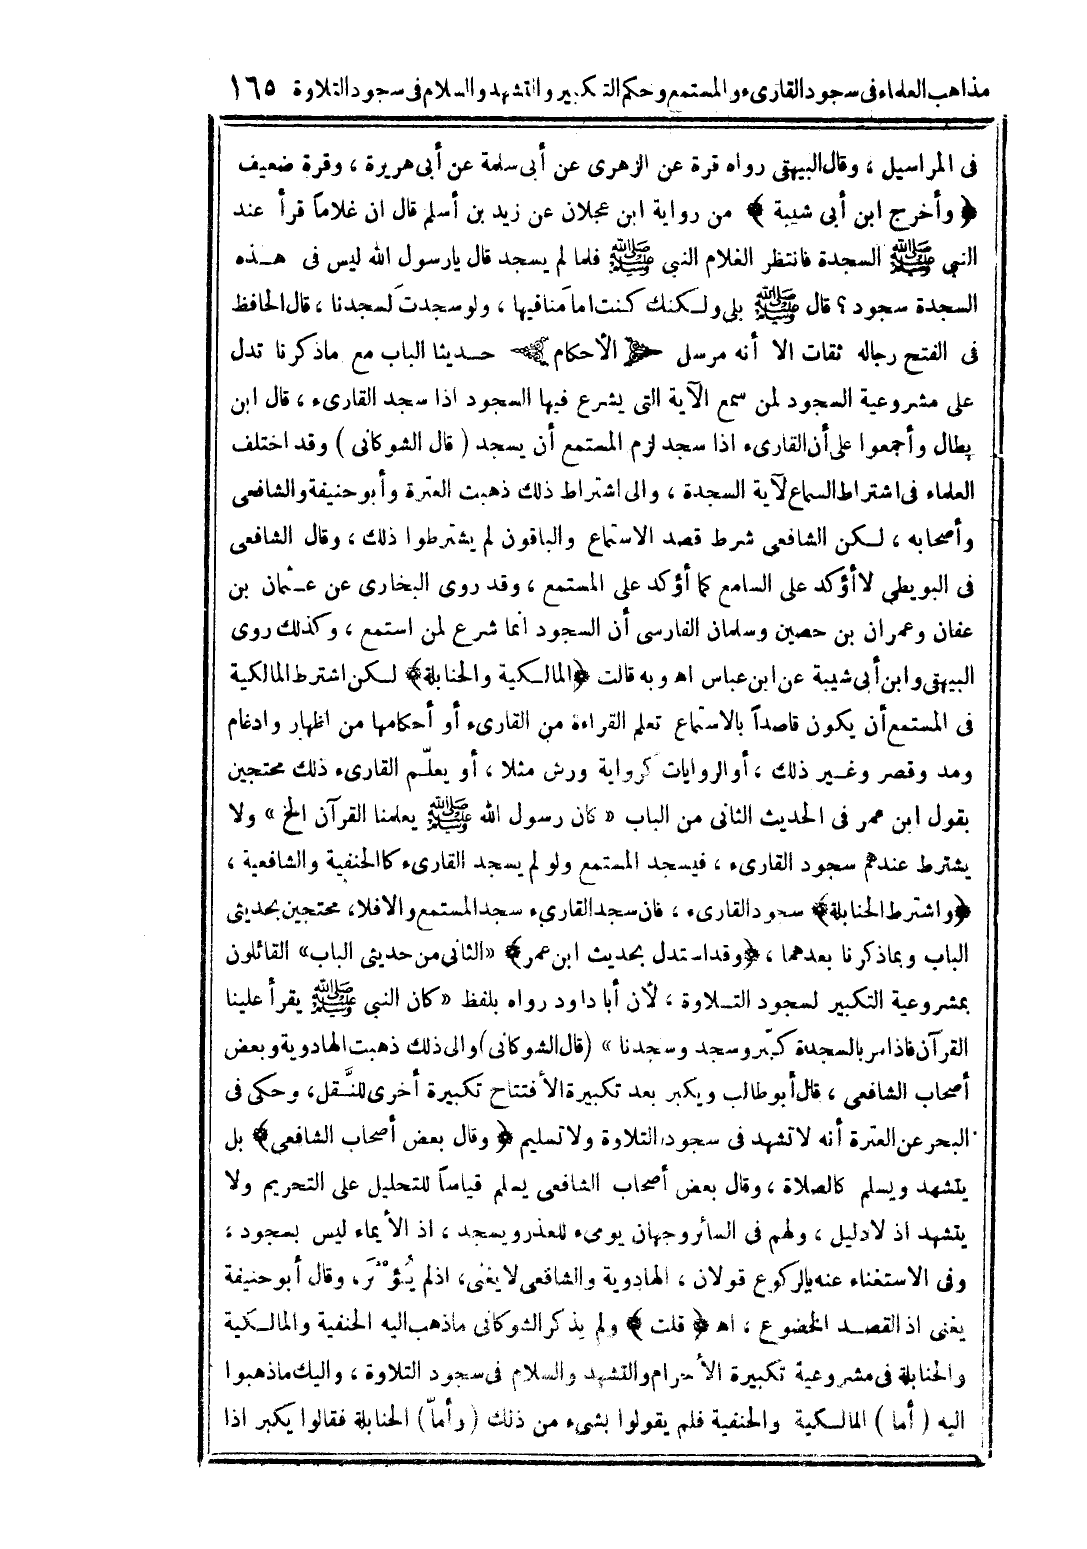 مذاهب العلماء فى سجود القارىء والمستمع وحكم التكبير والتشهد والسلام فى سجود التلاوة ١٦٥
فى المراسيل ، وقال البيهقى رواه قرة عن الزهرى عن أبى سلمة عن أبى هريرة ، وقرة ضعيف
﴿ وأخرج ابن أبى شيبة ﴾ من رواية ابن عجلان عن زيد بن أسلم قال ان غلاماً قرأ عند
النبي ﷺ السجدة فانتظر الغلام النبي ﷺ فلما لم يسجد قال يارسول الله ليس فى هـذه
السجدة سجود ؟ قال ﷺ بلى ولـكنك كنت امامنافيها ، ولو سجدت لسجدنا ، قال الحافظ
فى الفتح رجاله ثقات الا أنه مرسل ﴿ الأحكام ﴾ حـديثا الباب مع ماذكرنا تدل
على مشروعية السجود لمن سمع الآية التى يشرع فيها السجود اذا سجد القارىء ، قال ابن
بطال وأجمعوا على أن القارىء اذا سجد لزم المستمع أن يسجد ( قال الشوكانى ) وقد اختلف
العلماء فى اشتراط السماع لآية السجدة ، والى اشتراط ذلك ذهبت العترة وأبو حنيفة والشافعى
وأصحابه ، لـكن الشافعي شرط قصد الاستماع والباقون لم يشترطوا ذلك ، وقال الشافعى
فى البويطى لا أؤكد على السامع كما أؤكد على المستمع ، وقد روى البخارى عن عـثمان بن
عفان وعمران بن حصين وسلمان الفارسى أن السجود انما شرع لمن استمع ، وكذلك روى
البيهقى وابن أبى شيبة عن ابن عباس اهـ وبه قالت ﴿المالـكية والحنابلة﴾ لـكن اشترط المالكية
فى المستمع أن يكون قاصداً بالاستماع تعلم القراءة من القارىء أو أحكامها من اظهار وادغام
ومد وقصر وغـير ذلك ، أو الروايات كرواية ورش مثلا ، أو يعلّـم القارىء ذلك محتجين
بقول ابن عمر فى الحديث الثانى من الباب « كان رسول الله ﷺ يعلمنا القرآن الخ » ولا
يشترط عندهم سجود القارىء ، فيسجد المستمع ولو لم يسجد القارىء كالحنفية والشافعية ،
﴿واشترط الحنابلة﴾ سجود القارىء ، فان سجد القارىء سجد المستمع والا فلا، محتجين بحديثى
الباب وبما ذكرنا بعدهما ، ﴿وقد استدل بحديث ابن عمر﴾ «الثانى من حديثى الباب» القائلون
بمشروعية التكبير لسجود التـلاوة ، لأن أبا داود رواه بلفظ « كان النبي ﷺ يقرأ علينا
القرآن فاذا مر بالسجدة كبّر وسجد وسجدنا » (قال الشوكانى) والى ذلك ذهبت الهادوية وبعض
أصحاب الشافعى ، قال أبو طالب ويكبر بعد تكبيرة الأفتتاح تكبيرة أخرى للنَّـقل، وحكى فى
البحر عن العترة أنه لاتشهد فى سجود التلاوة ولا تسليم ﴿ وقال بعض أصحاب الشافعي ﴾ بل
يتشهد ويسلم كالصلاة ، وقال بعض أصحاب الشافعى يسلم قياساً للتحليل على التحريم ولا
يتشهد اذ لادليل ، ولهم فى السائر وجهان يومىء للعذر ويسجد ، اذ الأيماء ليس بسجود ،
وفى الاستغناء عنه بالركوع قولان ، الهادوية والشافعى لا يغنى، اذ لم يُـؤْثَرَ، وقال أبو حنيفة
يغنى اذ القصـد الخضوع ، اهـ ﴿ قلت ﴾ ولم يذكر الشوكانى ماذهب اليه الحنفية والمالـكية
والحنابلة فى مشروعية تكبيرة الأحرام والتشهد والسلام فى سجود التلاوة ، واليك ماذهبوا
اليه ( أما ) المالـكية والحنفية فلم يقولوا بشىء من ذلك ( وأمّا ) الحنابلة فقالوا يكبر اذا